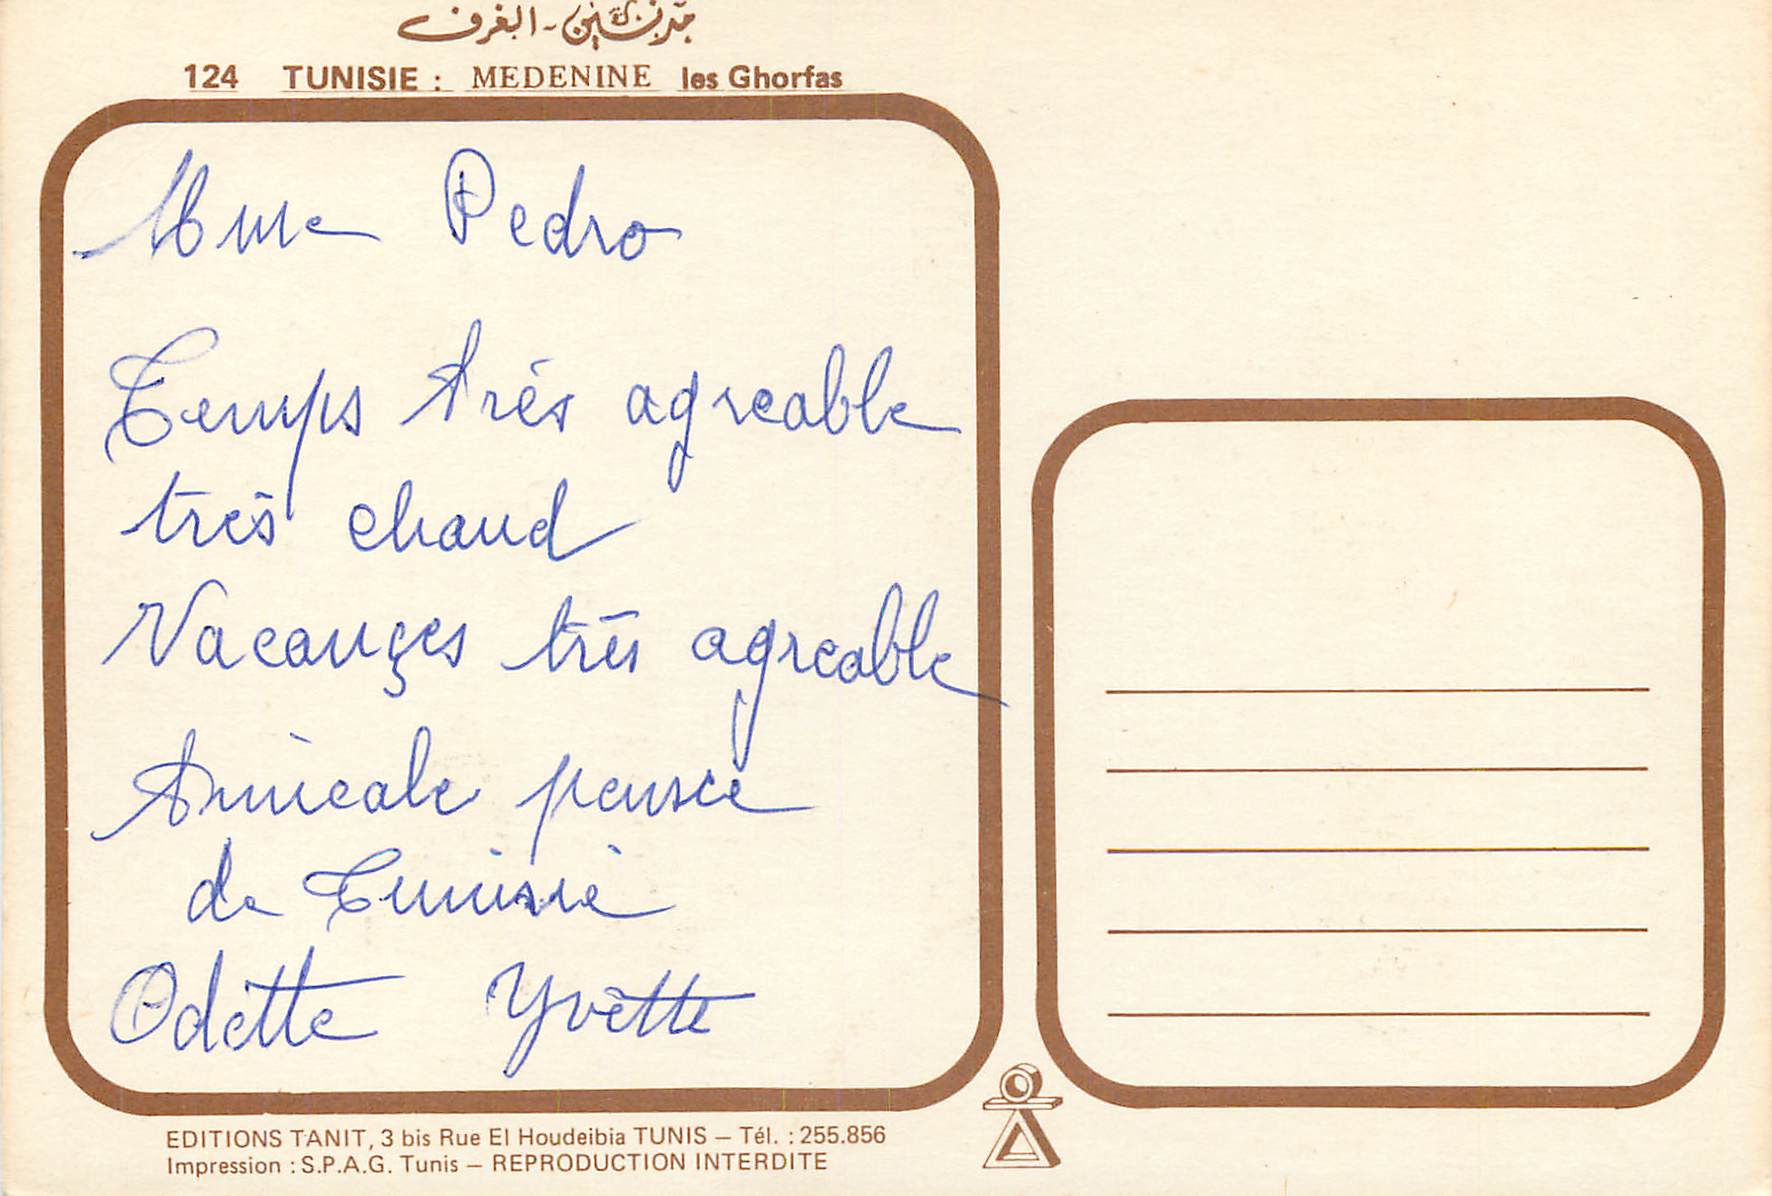 مدنين - الغرف
124 TUNISIE : MEDENINE les Ghorfas
Mme Pedro
Temps très agreable
très chaud
Vacançes très agreable
Amicale pensée
de Tunisie
Odette Yvette
EDITIONS TANIT, 3 bis Rue El Houdeibia TUNIS — Tél. : 255.856
Impression : S.P.A.G. Tunis — REPRODUCTION INTERDITE